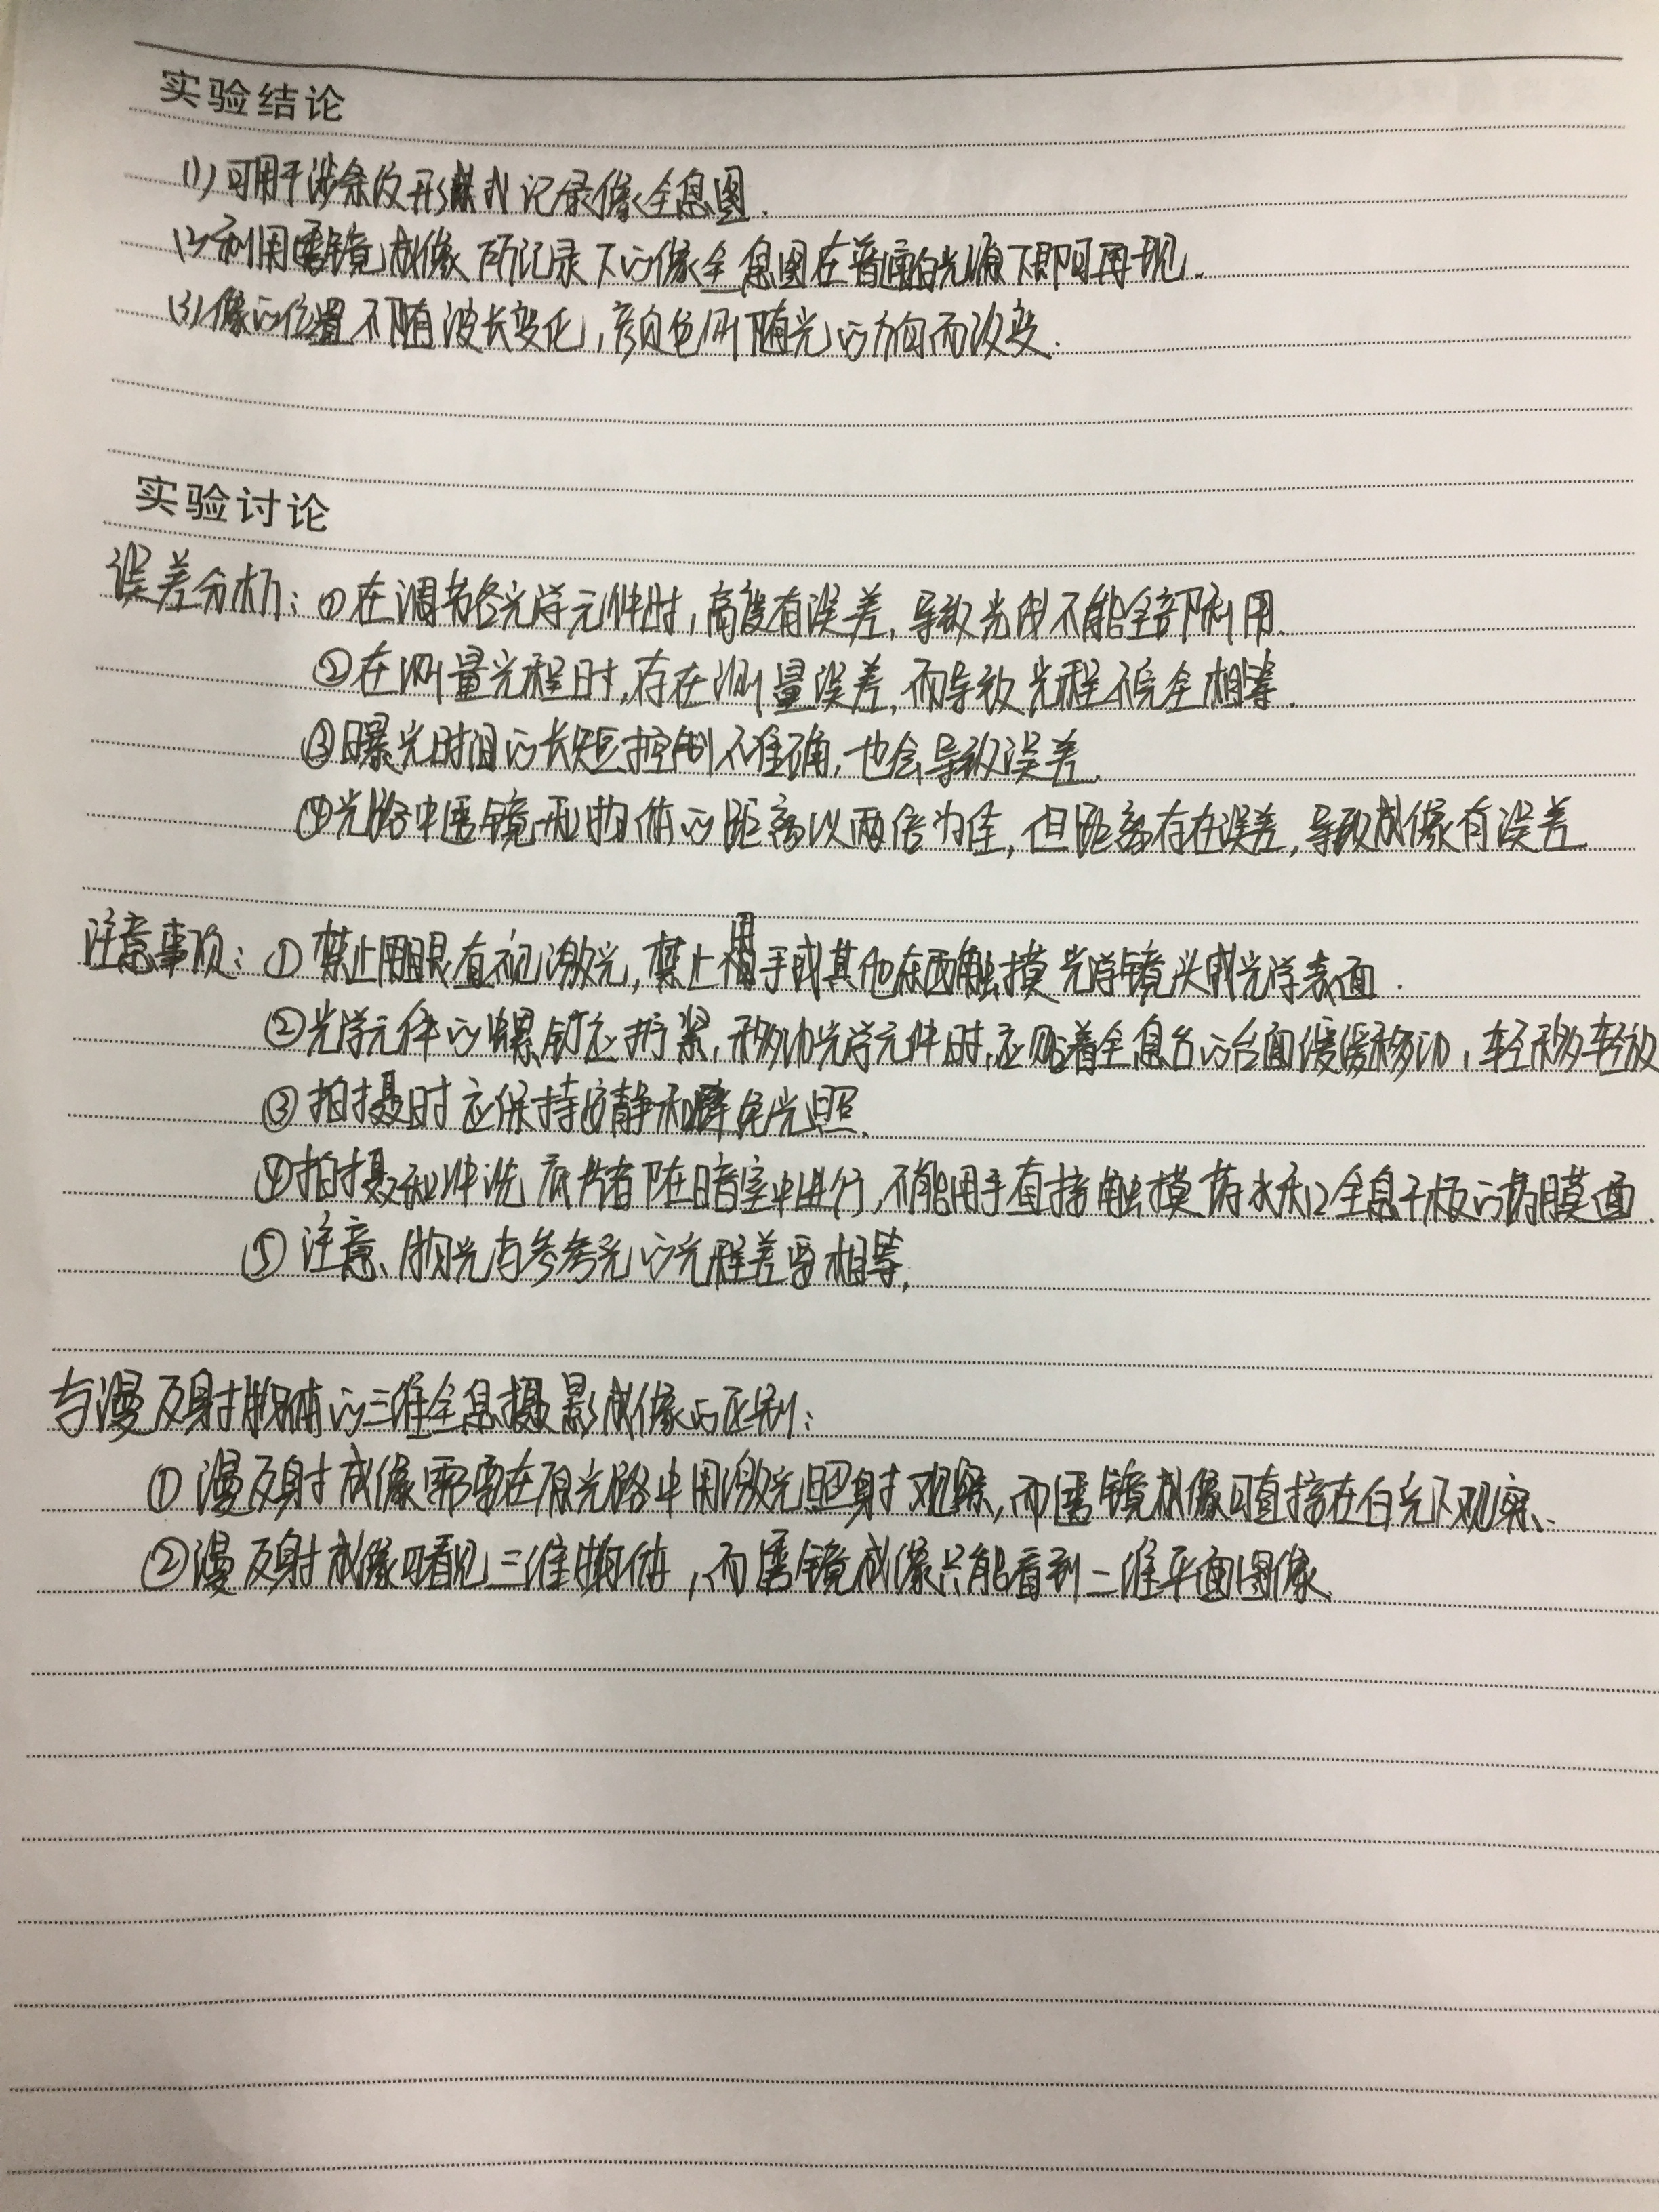 实验结论
(1) 可用干涉条纹形式记录像全息图.
(2) 利用透镜成像所记录下的像全息图在普通的光源下即可再现.
(3) 像的位置不随波长变化,颜色则随光的方向而改变.
实验讨论
误差分析: ①在调节各光学元件时,高度有误差,导致光束不能全部利用.
②在测量光程时,存在测量误差,而导致光程不完全相等.
③曝光时间的长短控制不准确,也会导致误差.
④光路中透镜和物体的距离以两倍为佳,但距离存在误差,导致成像有误差.
注意事项: ①禁止用眼直视激光,禁止用手或其他东西触摸光学镜头或光学表面.
②光学元件的螺钉应拧紧,移动光学元件时,应贴着全息台的台面缓缓移动,轻移轻放
③拍摄时应保持安静和避免光照.
④拍摄和冲洗底片都在暗室中进行,不能用手直接触摸药水和全息干板的药膜面.
⑤注意、物光与参考光的光程差要相等.
与漫反射物体的三维全息摄影成像的区别:
①漫反射成像需要在原光路中用激光照射观察,而透镜成像可直接在白光下观察、
②漫反射成像可看见三维物体,而透镜成像只能看到二维平面图像、